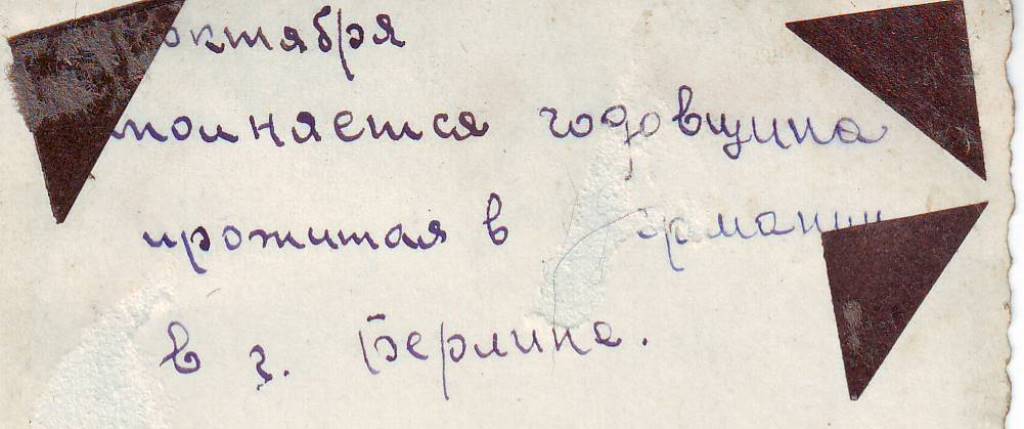 октября
полняется годовщина
прожитая в Германии
в г. Берлине.